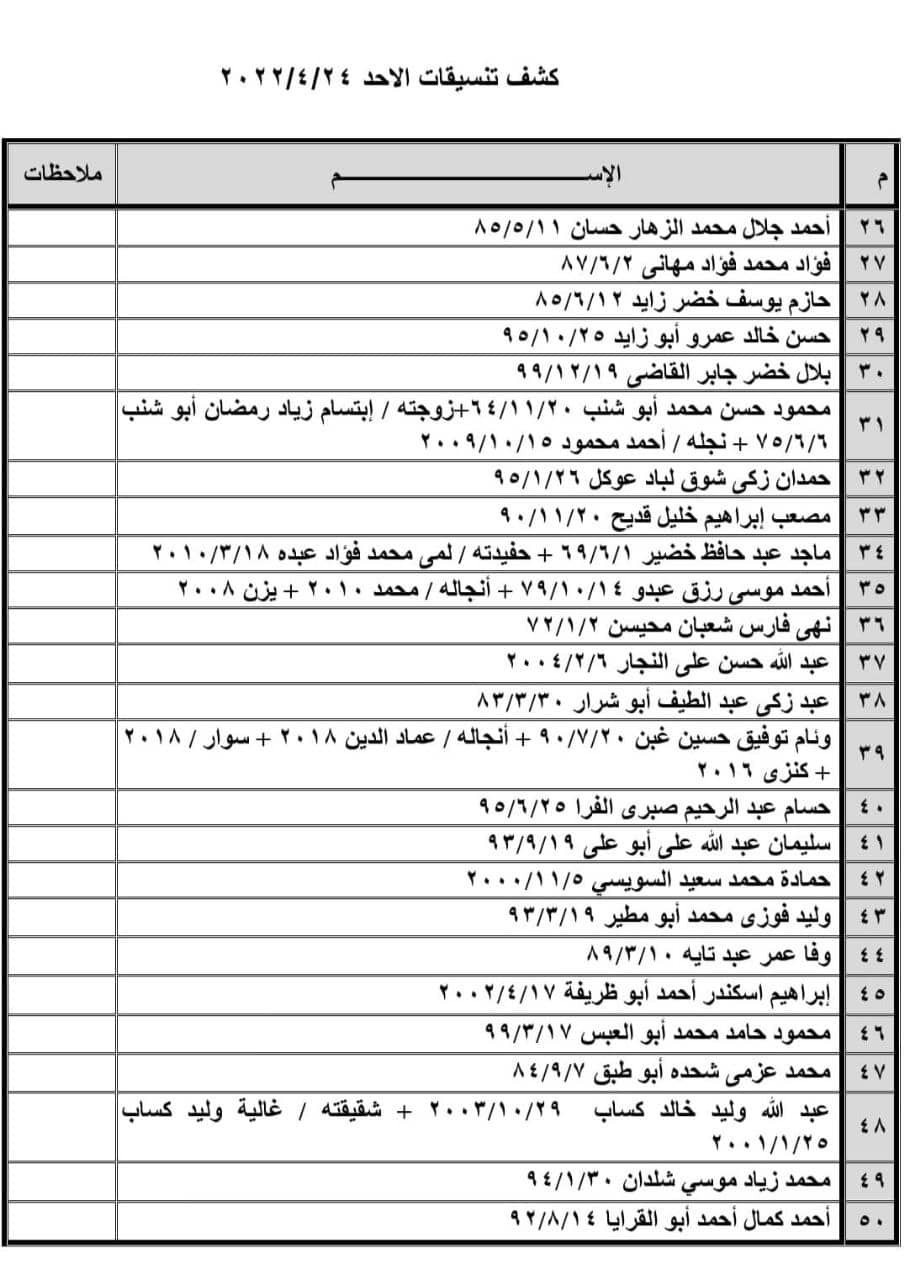 كشف تنسيقات الاحد ٢٠٢٢/٤/٢٤
م الإســــم ملاحظات
٢٦ أحمد جلال محمد الزهار حسان ٨٥/٥/١١
٢٧ فؤاد محمد فؤاد مهانى ٨٧/٦/٢
٢٨ حازم يوسف خضر زايد ٨٥/٦/١٢
٢٩ حسن خالد عمرو أبو زايد ٩٥/١٠/٢٥
٣٠ بلال خضر جابر القاضى ٩٩/١٢/١٩
٣١ محمود حسن محمد أبو شنب ٦٤/١١/٢٠+زوجته / إبتسام زياد رمضان أبو شنب
٧٥/٦/٦ + نجله / أحمد محمود ٢٠٠٩/١٠/١٥
٣٢ حمدان زكى شوق لباد عوكل ٩٥/١/٢٦
٣٣ مصعب إبراهيم خليل قديح ٩٠/١١/٢٠
٣٤ ماجد عبد حافظ خضير ٦٩/٦/١ + حفيدته / لمى محمد فؤاد عبده ٢٠١٠/٣/١٨
٣٥ أحمد موسى رزق عبدو ٧٩/١٠/١٤ + أنجاله / محمد ٢٠١٠ + يزن ٢٠٠٨
٣٦ نهى فارس شعبان محيسن ٧٢/١/٢
٣٧ عبد الله حسن على النجار ٢٠٠٤/٢/٦
٣٨ عبد زكى عبد الطيف أبو شرار ٨٣/٣/٣٠
٣٩ وئام توفيق حسين غبن ٩٠/٧/٢٠ + أنجاله / عماد الدين ٢٠١٨ + سوار / ٢٠١٨
+ كنزى ٢٠١٦
٤٠ حسام عبد الرحيم صبرى الفرا ٩٥/٦/٢٥
٤١ سليمان عبد الله على أبو على ٩٣/٩/١٩
٤٢ حمادة محمد سعيد السويسي ٢٠٠٠/١١/٥
٤٣ وليد فوزى محمد أبو مطير ٩٣/٣/١٩
٤٤ وفا عمر عبد تايه ٨٩/٣/١٠
٤٥ إبراهيم اسكندر أحمد أبو ظريفة ٢٠٠٢/٤/١٧
٤٦ محمود حامد محمد أبو العبس ٩٩/٣/١٧
٤٧ محمد عزمى شحده أبو طبق ٨٤/٩/٧
٤٨ عبد الله وليد خالد كساب ٢٠٠٣/١٠/٢٩ + شقيقته / غالية وليد كساب
٢٠٠١/١/٢٥
٤٩ محمد زياد موسي شلدان ٩٤/١/٣٠
٥٠ أحمد كمال أحمد أبو القرايا ٩٢/٨/١٤